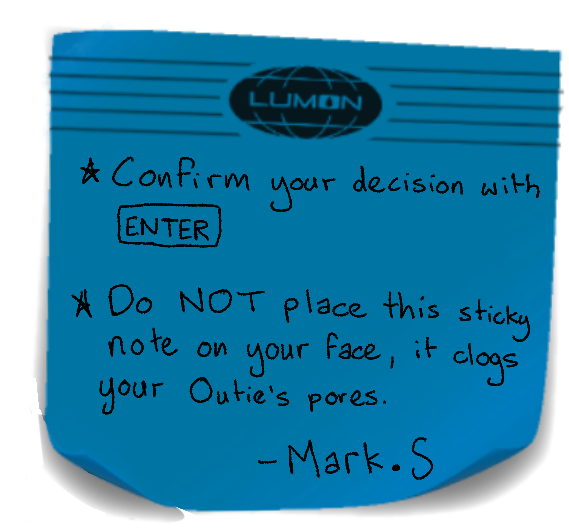 LUMON
* Confirm your decision with
ENTER
* Do NOT place this sticky
note on your face, it clogs
your Outie's pores.
-Mark.S